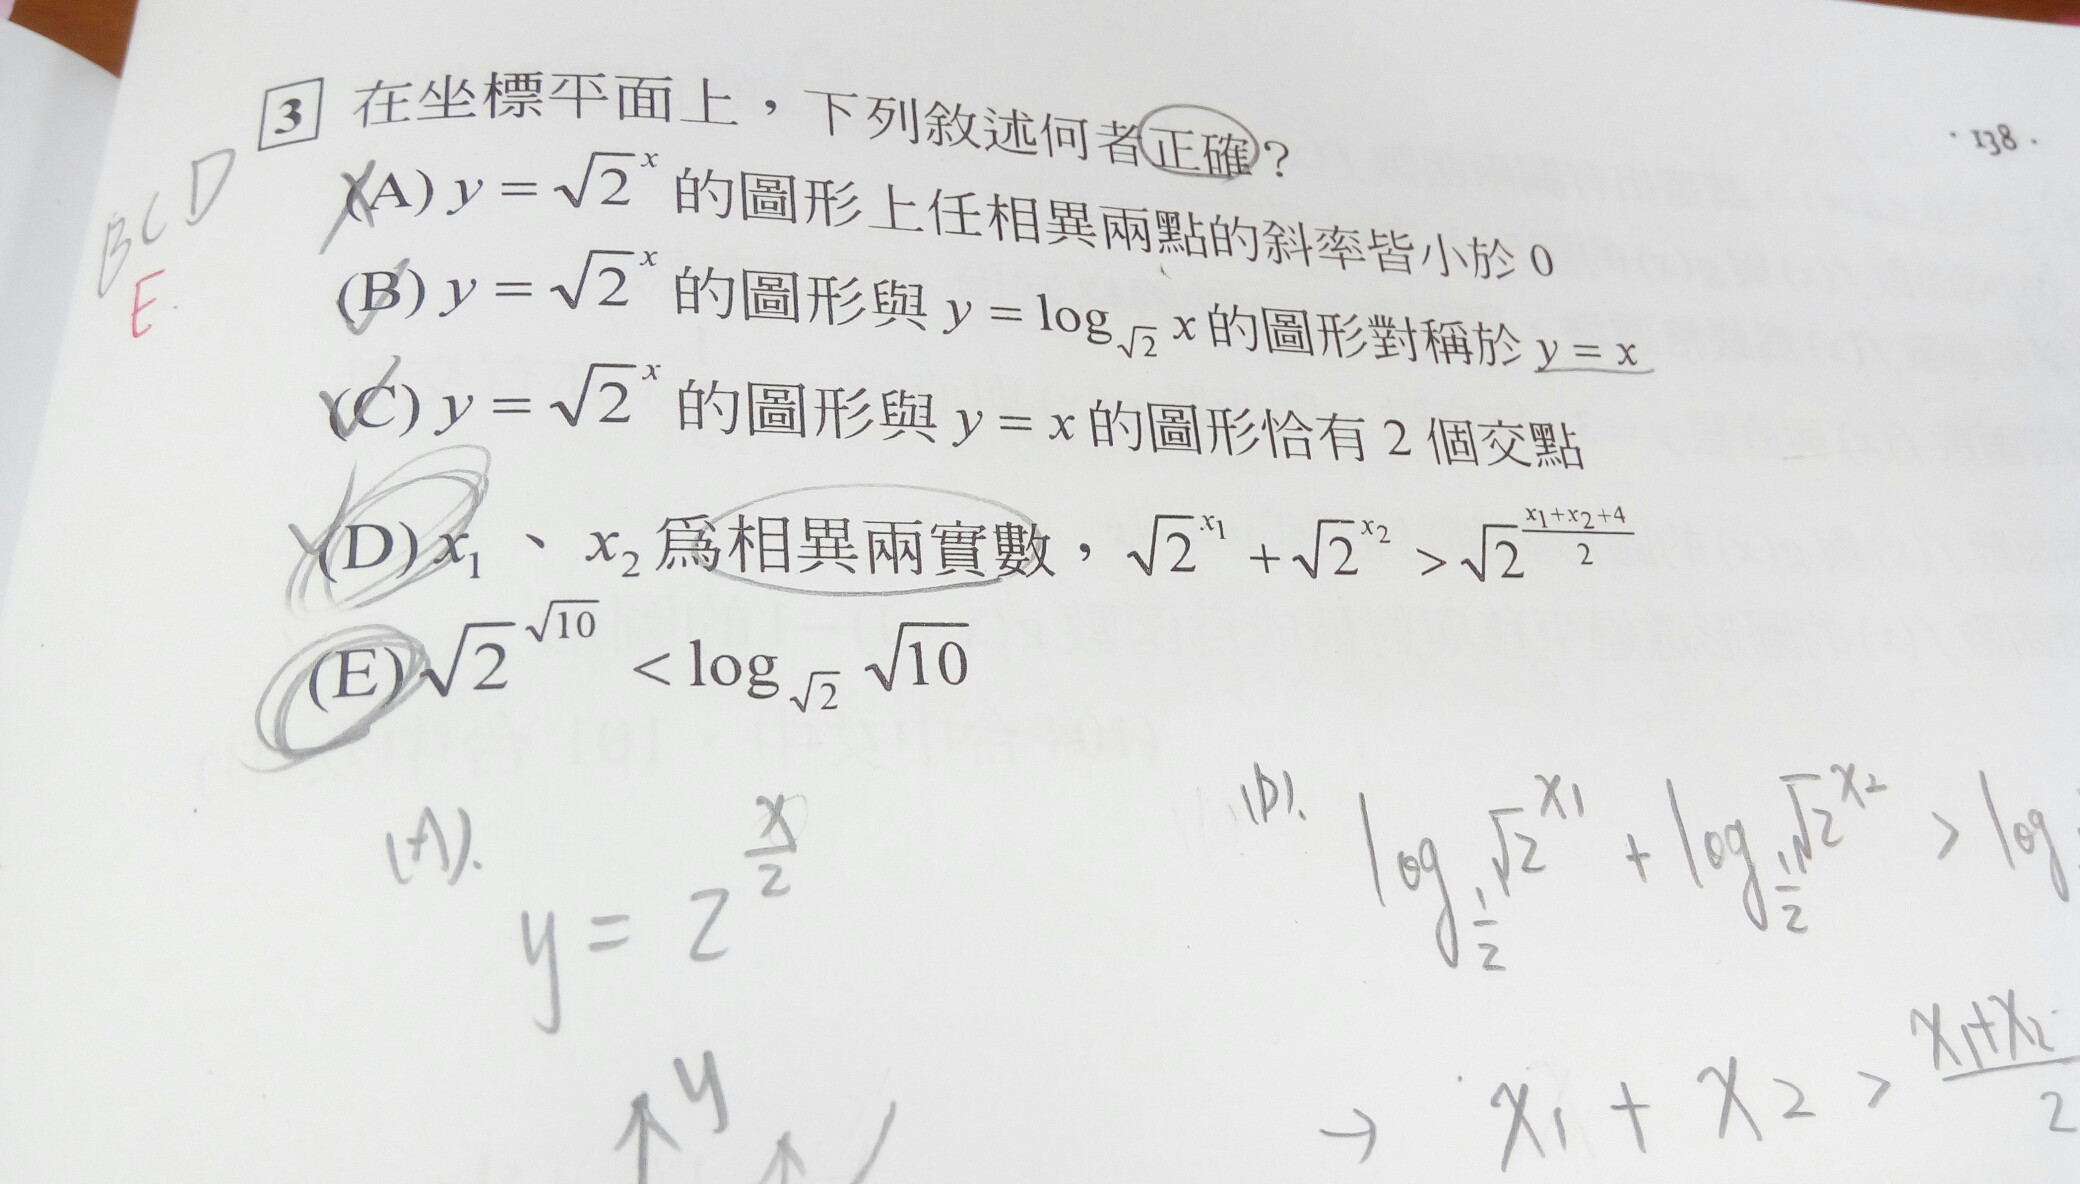 · 138 ·
3 在坐標平面上，下列敘述何者正確？
(A) y = √2^x 的圖形上任相異兩點的斜率皆小於 0
(B) y = √2^x 的圖形與 y = log_√2 x 的圖形對稱於 y = x
(C) y = √2^x 的圖形與 y = x 的圖形恰有 2 個交點
(D) x₁、x₂ 爲相異兩實數，√2^x₁ + √2^x₂ > √2^((x₁+x₂+4)/2)
(E) √2^√10 < log_√2 √10
BCD
E.
(A).
y = 2^(x/2)
y
(D).
log_(1/2) √2^x₁ + log_(1/2) √2^x₂ > log
→ x₁ + x₂ > (x₁+x₂)/2